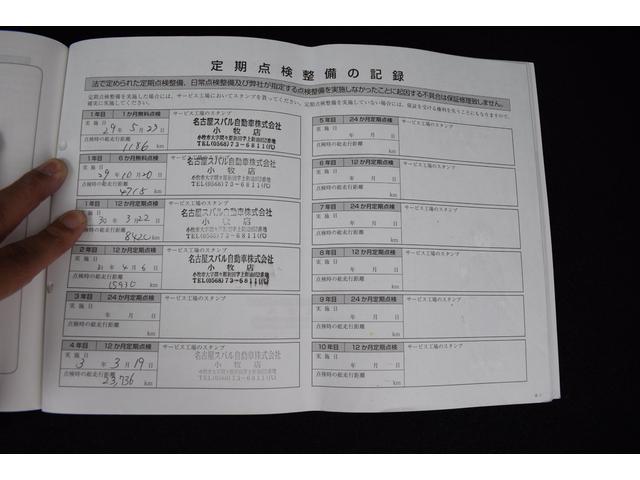 定期点検整備の記録
法で定められた定期点検整備、日常点検整備及び弊社が指定する点検整備を実施しなかったことに起因する不具合は保証修理致しません。
定期点検整備を実施した場合には、サービス工場においてスタンプを貰ってください。定期点検整備を実施していない場合には、保証を受ける権利を失うことにもなりますので、
確実に実施してください。
1年目 1か月無料点検 サービス工場のスタンプ
実施日
29年5月23日
点検時の総走行距離
1186 km
名古屋スバル自動車株式会社
小牧店
TEL(0568)73-6811㈹
1年目 6か月無料点検 サービス工場のスタンプ
実施日
29年10月20日
点検時の総走行距離
4715 km
名古屋スバル自動車株式会社
小牧店
TEL(0568)73-6811㈹
1年目 12か月定期点検 サービス工場のスタンプ
実施日
30年3月22日
点検時の総走行距離
8420 km
名古屋スバル自動車株式会社
小牧店
TEL(0568)73-6811㈹
2年目 12か月定期点検 サービス工場のスタンプ
実施日
31年4月6日
点検時の総走行距離
15930 km
名古屋スバル自動車株式会社
小牧店
TEL(0568)73-6811㈹
3年目 24か月定期点検 サービス工場のスタンプ
実施日
年 月 日
点検時の総走行距離
km
4年目 12か月定期点検 サービス工場のスタンプ
実施日
3年3月19日
点検時の総走行距離
23,736 km
名古屋スバル自動車株式会社
小牧店
TEL(0568)73-6811㈹
5年目 24か月定期点検 サービス工場のスタンプ
実施日
年 月 日
点検時の総走行距離
km
6年目 12か月定期点検 サービス工場のスタンプ
実施日
年 月 日
点検時の総走行距離
km
7年目 24か月定期点検 サービス工場のスタンプ
実施日
年 月 日
点検時の総走行距離
km
8年目 12か月定期点検 サービス工場のスタンプ
実施日
年 月 日
点検時の総走行距離
km
9年目 24か月定期点検 サービス工場のスタンプ
実施日
年 月 日
点検時の総走行距離
km
10年目 12か月定期点検 サービス工場のスタンプ
実施日
年 月 日
点検時の総走行距離
km